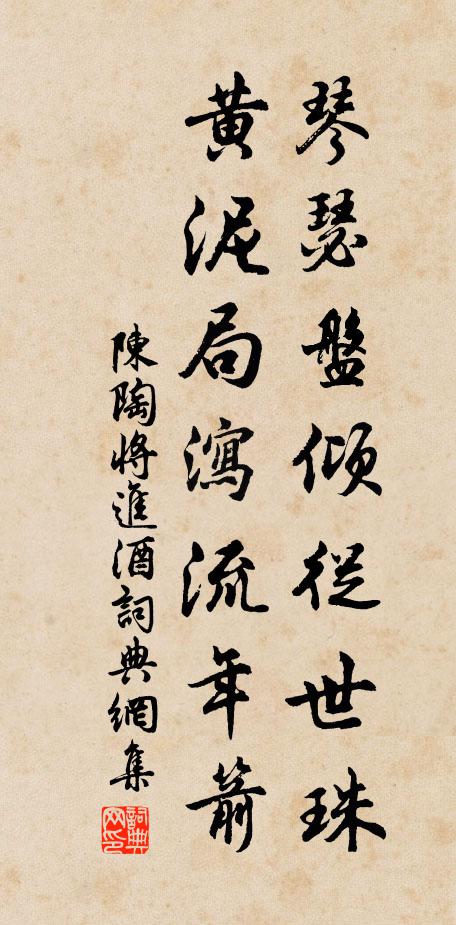 琴瑟盤傾從世珠
黃泥局瀉流年箭
陳陶將進酒詞典網集
詞典網印